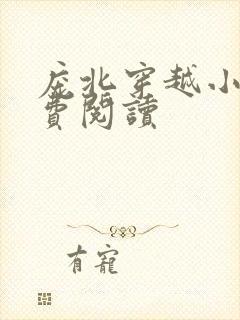 庇北穿越小
費閱讀
有寵